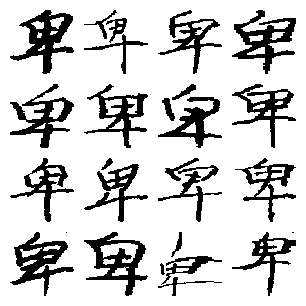 卑卑卑卑
卑卑卑卑
卑卑卑卑
卑卑卑卑